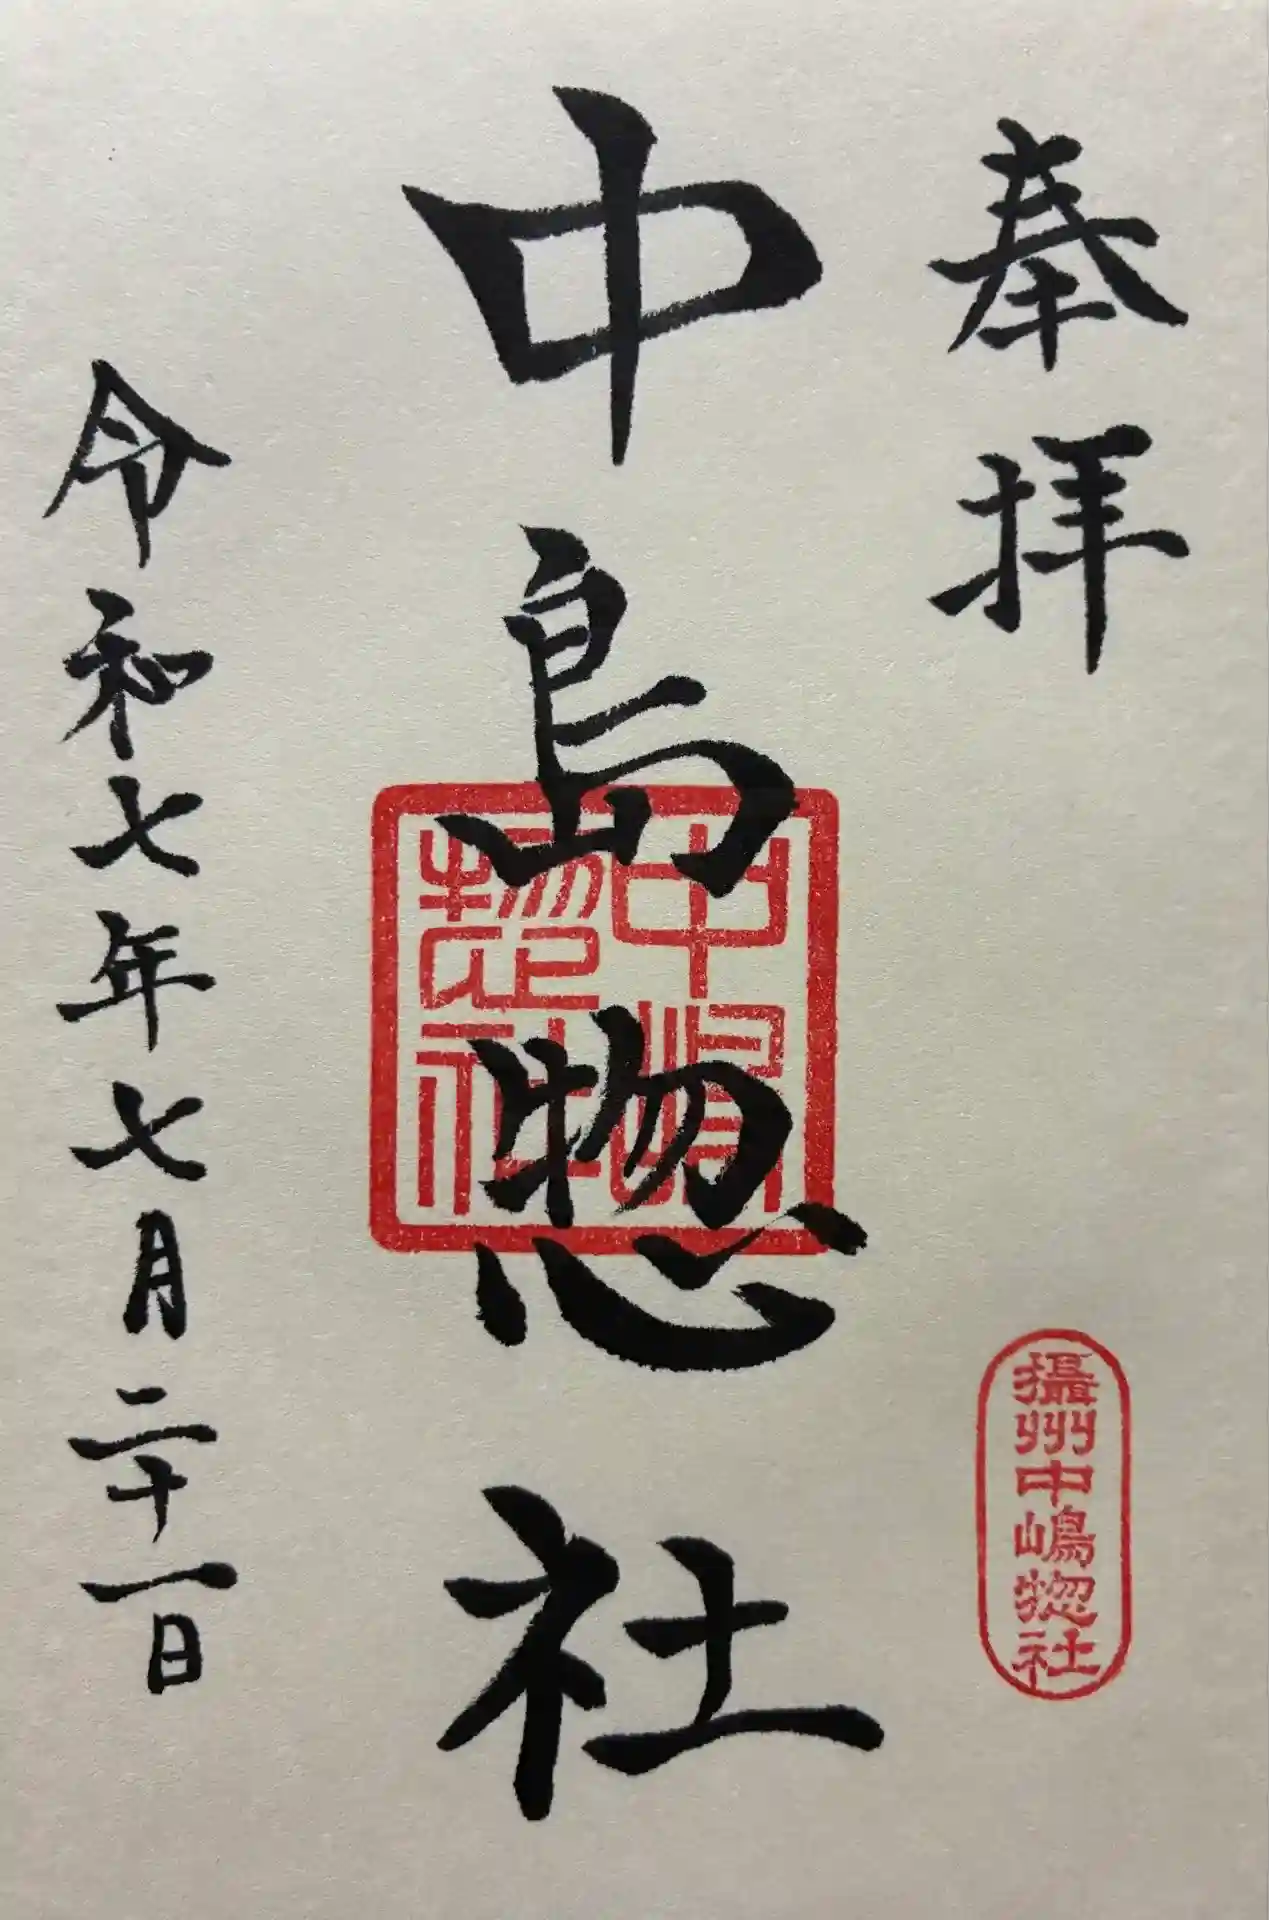 奉拝
攝州中嶋惣社
中島惣社
中嶋
惣社
令和七年七月二十一日